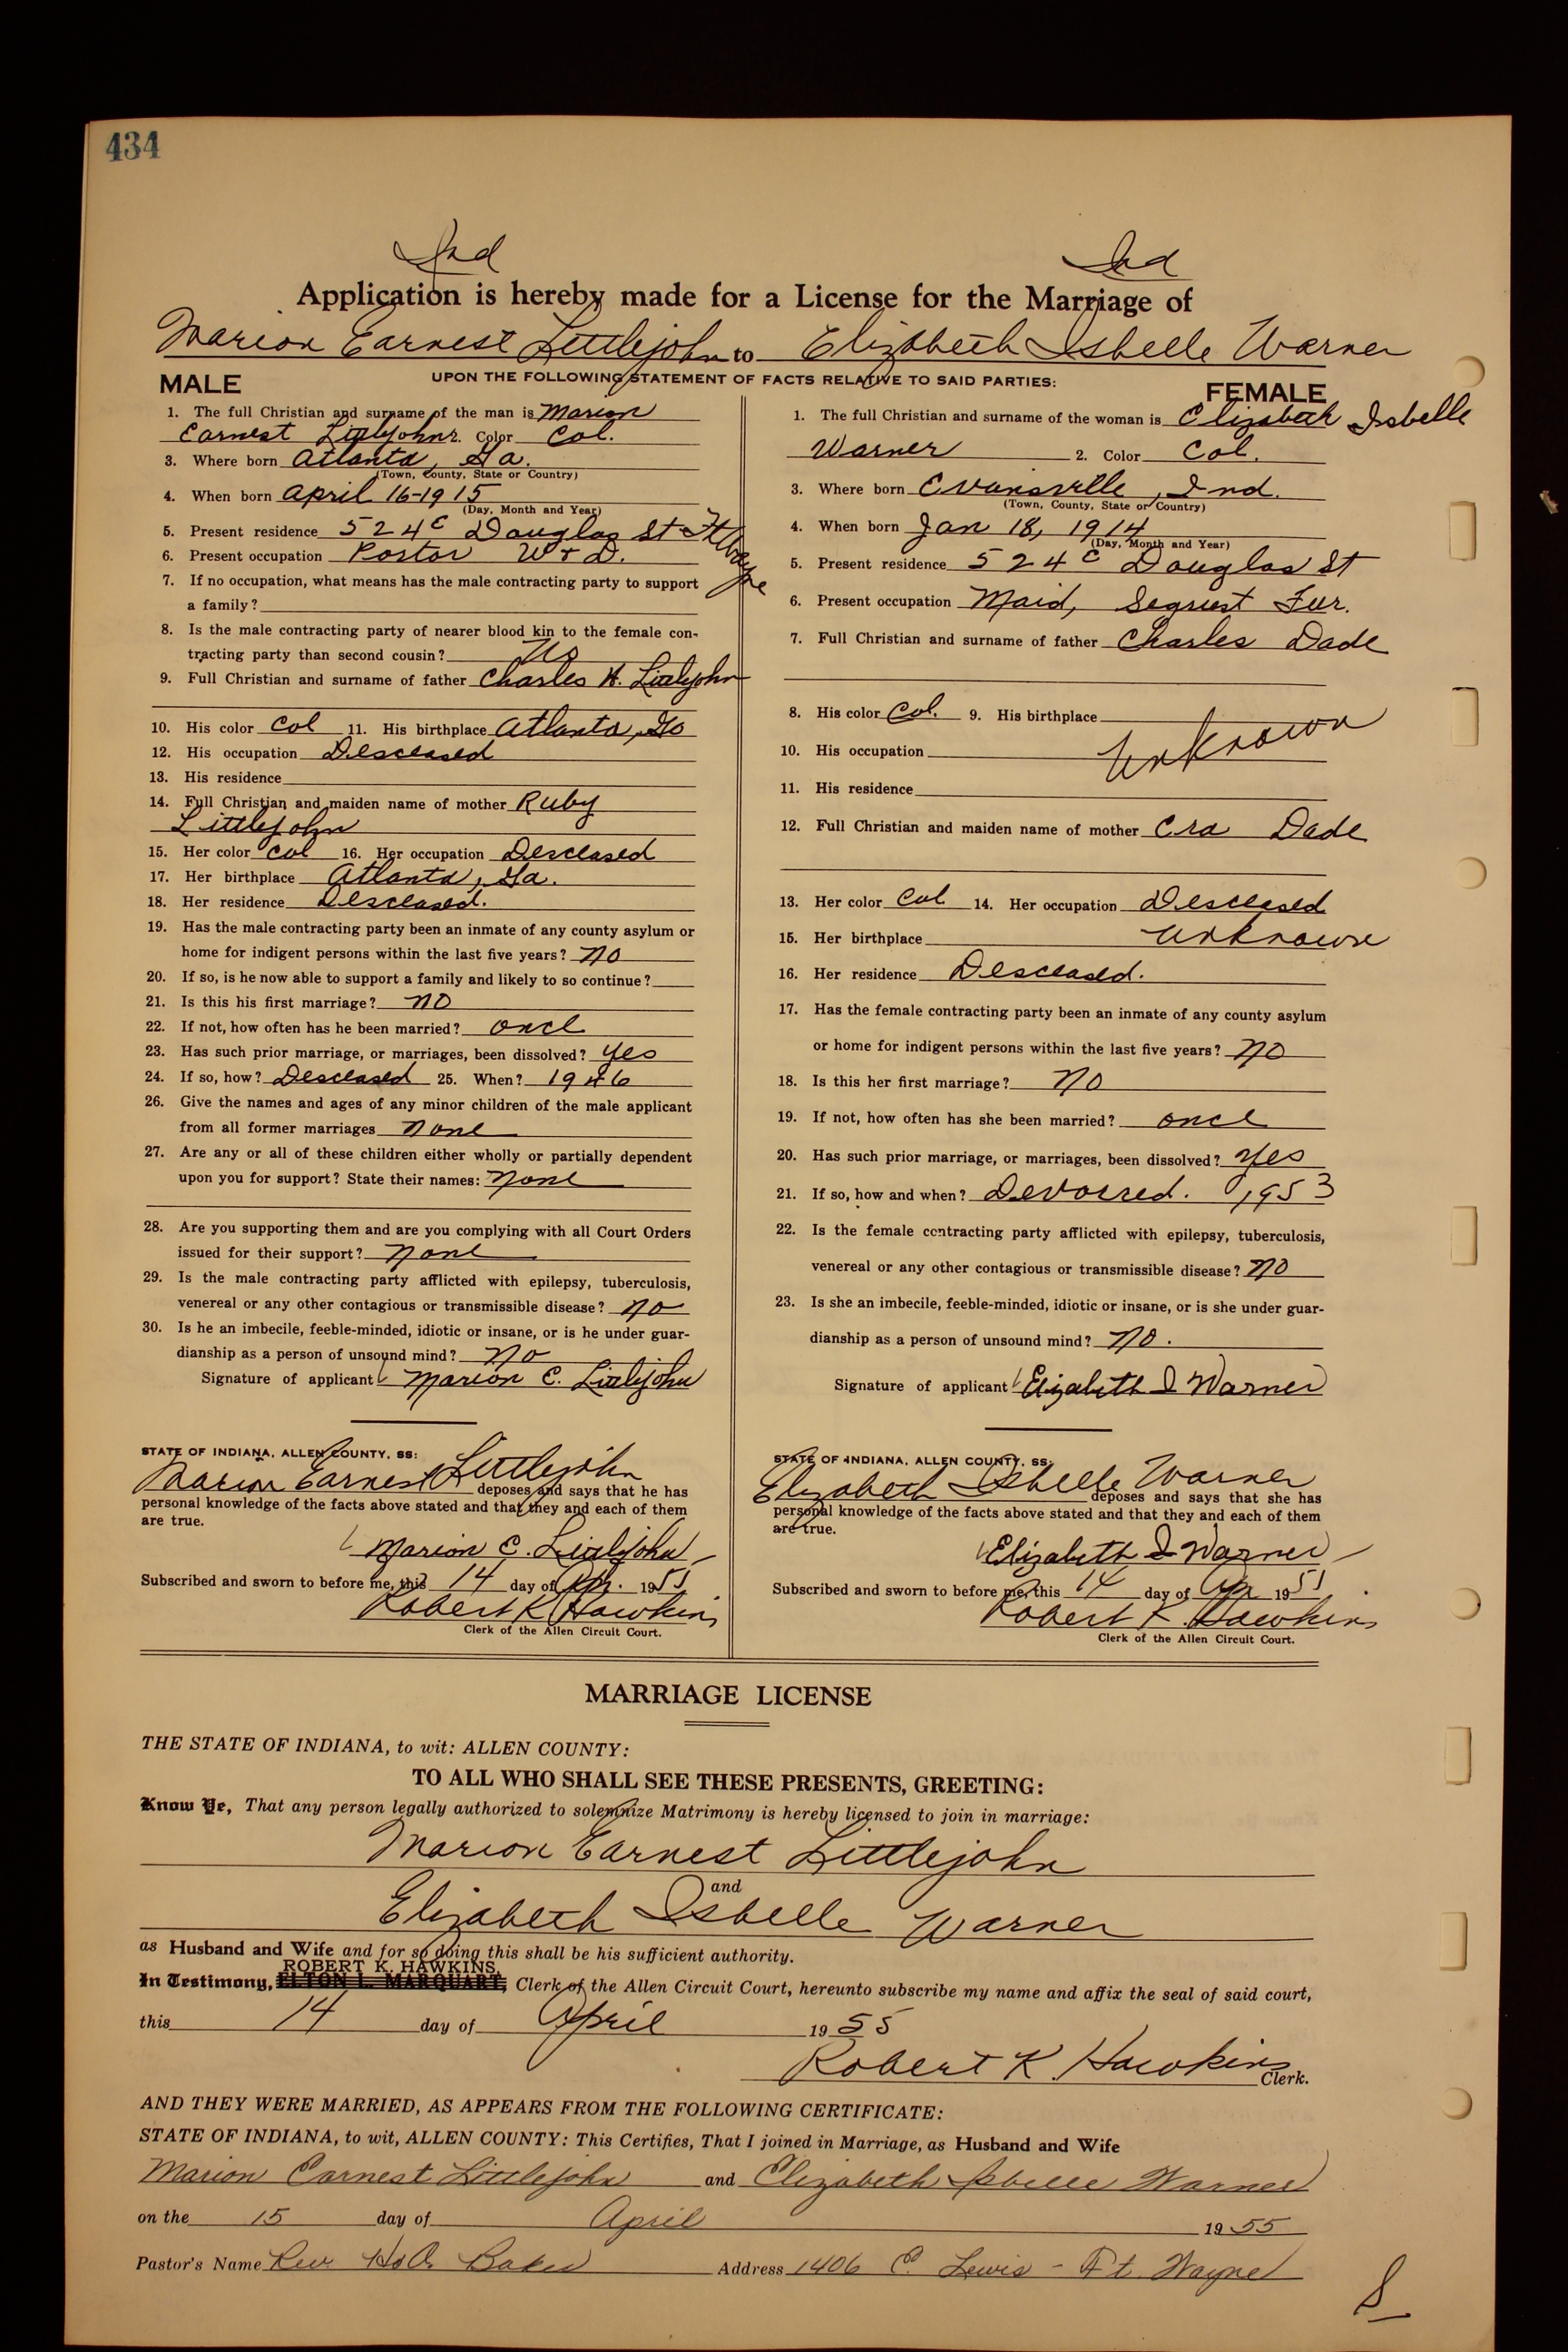 434
Ind Ind
Application is hereby made for a License for the Marriage of
Marion Earnest Littlejohn to Elizabeth Isbelle Warner
UPON THE FOLLOWING STATEMENT OF FACTS RELATIVE TO SAID PARTIES:
MALE
1. The full Christian and surname of the man is Marion
Earnest Littlejohn 2. Color Col.
3. Where born Atlanta, Ga.
(Town, County, State or Country)
4. When born April 16-1915
(Day, Month and Year)
5. Present residence 524 E Douglas St Ft Wayne
6. Present occupation Postor W & D.
7. If no occupation, what means has the male contracting party to support
a family?
8. Is the male contracting party of nearer blood kin to the female con-
tracting party than second cousin? No
9. Full Christian and surname of father Charles H. Littlejohn
10. His color Col 11. His birthplace Atlanta, Ga
12. His occupation Desceased
13. His residence
14. Full Christian and maiden name of mother Ruby
Littlejohn
15. Her color Col 16. Her occupation Desceased
17. Her birthplace Atlanta, Ga.
18. Her residence Desceased.
19. Has the male contracting party been an inmate of any county asylum or
home for indigent persons within the last five years? no
20. If so, is he now able to support a family and likely to so continue?
21. Is this his first marriage? no
22. If not, how often has he been married? once
23. Has such prior marriage, or marriages, been dissolved? yes
24. If so, how? Desceased 25. When? 1946
26. Give the names and ages of any minor children of the male applicant
from all former marriages none
27. Are any or all of these children either wholly or partially dependent
upon you for support? State their names: none
28. Are you supporting them and are you complying with all Court Orders
issued for their support? none
29. Is the male contracting party afflicted with epilepsy, tuberculosis,
venereal or any other contagious or transmissible disease? no
30. Is he an imbecile, feeble-minded, idiotic or insane, or is he under guar-
dianship as a person of unsound mind? no
Signature of applicant Marion E. Littlejohn
STATE OF INDIANA, ALLEN COUNTY, SS:
Marion Earnest Littlejohn deposes and says that he has
personal knowledge of the facts above stated and that they and each of them
are true.
Marion E. Littlejohn
Subscribed and sworn to before me, this 14 day of Apr. 1955
Robert K Hawkins
Clerk of the Allen Circuit Court.
FEMALE
1. The full Christian and surname of the woman is Elizabeth Isbelle
Warner 2. Color Col.
3. Where born Evansville, Ind.
(Town, County, State or Country)
4. When born Jan 18, 1914
(Day, Month and Year)
5. Present residence 524 E Douglas St
6. Present occupation Maid, Fur.
7. Full Christian and surname of father Charles Dade
8. His color Col. 9. His birthplace
10. His occupation Unknown
11. His residence
12. Full Christian and maiden name of mother Era Dade
13. Her color Col 14. Her occupation Desceased
15. Her birthplace Unknown
16. Her residence Desceased.
17. Has the female contracting party been an inmate of any county asylum
or home for indigent persons within the last five years? no
18. Is this her first marriage? no
19. If not, how often has she been married? once
20. Has such prior marriage, or marriages, been dissolved? yes
21. If so, how and when? Devorsed. 1953
22. Is the female contracting party afflicted with epilepsy, tuberculosis,
venereal or any other contagious or transmissible disease? no
23. Is she an imbecile, feeble-minded, idiotic or insane, or is she under guar-
dianship as a person of unsound mind? no.
Signature of applicant Elizabeth I Warner
STATE OF INDIANA, ALLEN COUNTY, SS:
Elizabeth Isbelle Warner deposes and says that she has
personal knowledge of the facts above stated and that they and each of them
are true.
Elizabeth I Warner
Subscribed and sworn to before me, this 14 day of Apr 1955
Robert K. Hawkins
Clerk of the Allen Circuit Court.
MARRIAGE LICENSE
THE STATE OF INDIANA, to wit: ALLEN COUNTY:
TO ALL WHO SHALL SEE THESE PRESENTS, GREETING:
Know Ye, That any person legally authorized to solemnize Matrimony is hereby licensed to join in marriage:
Marion Earnest Littlejohn
and
Elizabeth Isbelle Warner
as Husband and Wife and for so doing this shall be his sufficient authority.
ROBERT K. HAWKINS,
In Testimony, ELTON L. MARQUART, Clerk of the Allen Circuit Court, hereunto subscribe my name and affix the seal of said court,
this 14 day of April 1955
Robert K Hawkins Clerk.
AND THEY WERE MARRIED, AS APPEARS FROM THE FOLLOWING CERTIFICATE:
STATE OF INDIANA, to wit, ALLEN COUNTY: This Certifies, That I joined in Marriage, as Husband and Wife
Marion Earnest Littlejohn and Elizabeth Isbelle Warner
on the 15 day of April 1955
Pastor's Name Rev. Baker Address 1406 E. Lewis - Ft. Wayne